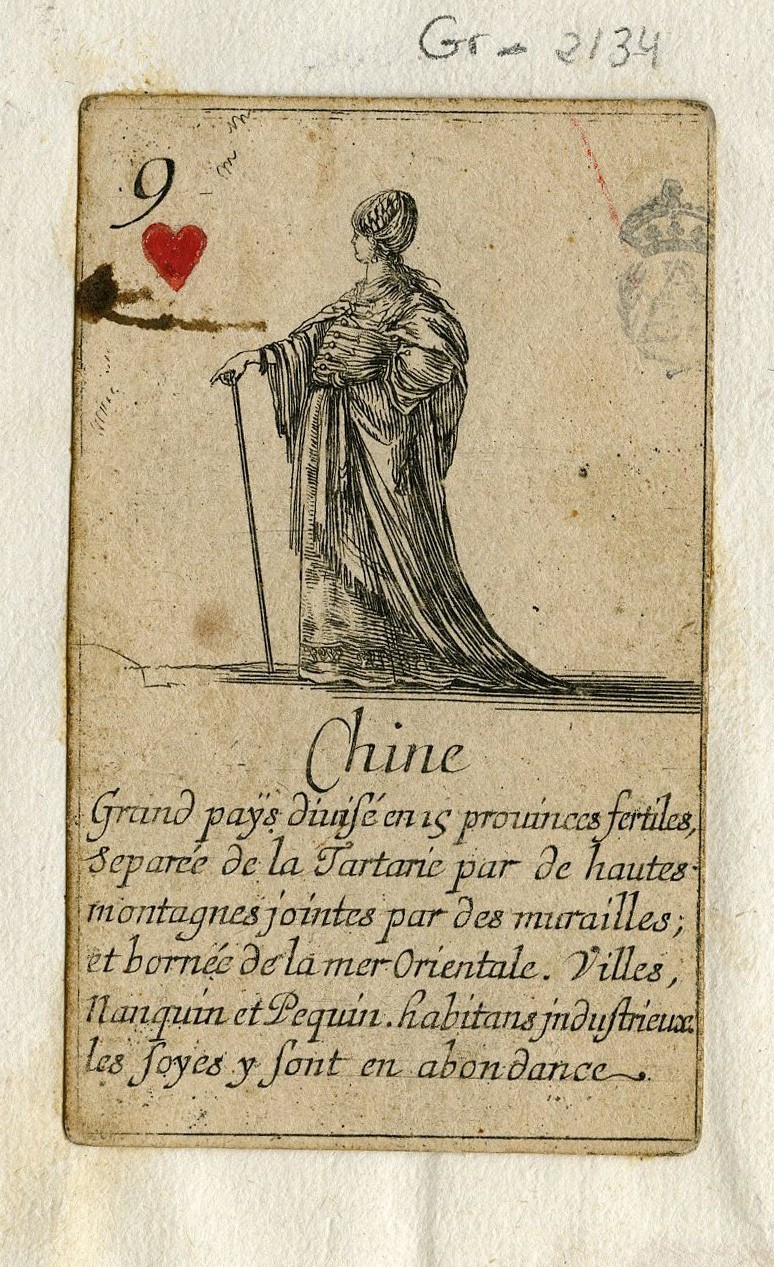 Gr - 2134
9
Chine
Grand païs diuisé en 15 prouinces fertiles,
Separée de la Tartarie par de hautes
montagnes jointes par des murailles;
et bornée de la mer Orientale. Villes,
Nanquin et Pequin. habitans jndustrieux.
les soyes y sont en abondance